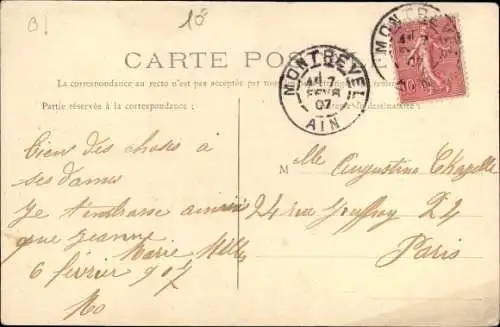 B!
10
CARTE POS
La correspondance au recto n'est pas acceptée par
Partie réservée à la correspondance :
MONTREVEL
7
FEVR
07
AIN
MONTREVEL
10
bien des choses à
ses dames
Je t'embrasse ainsi
que Jeanne
Marie
6 février 907
Mo
Melle Augustine Chapelle
24 rue Jouffroy 24
Paris